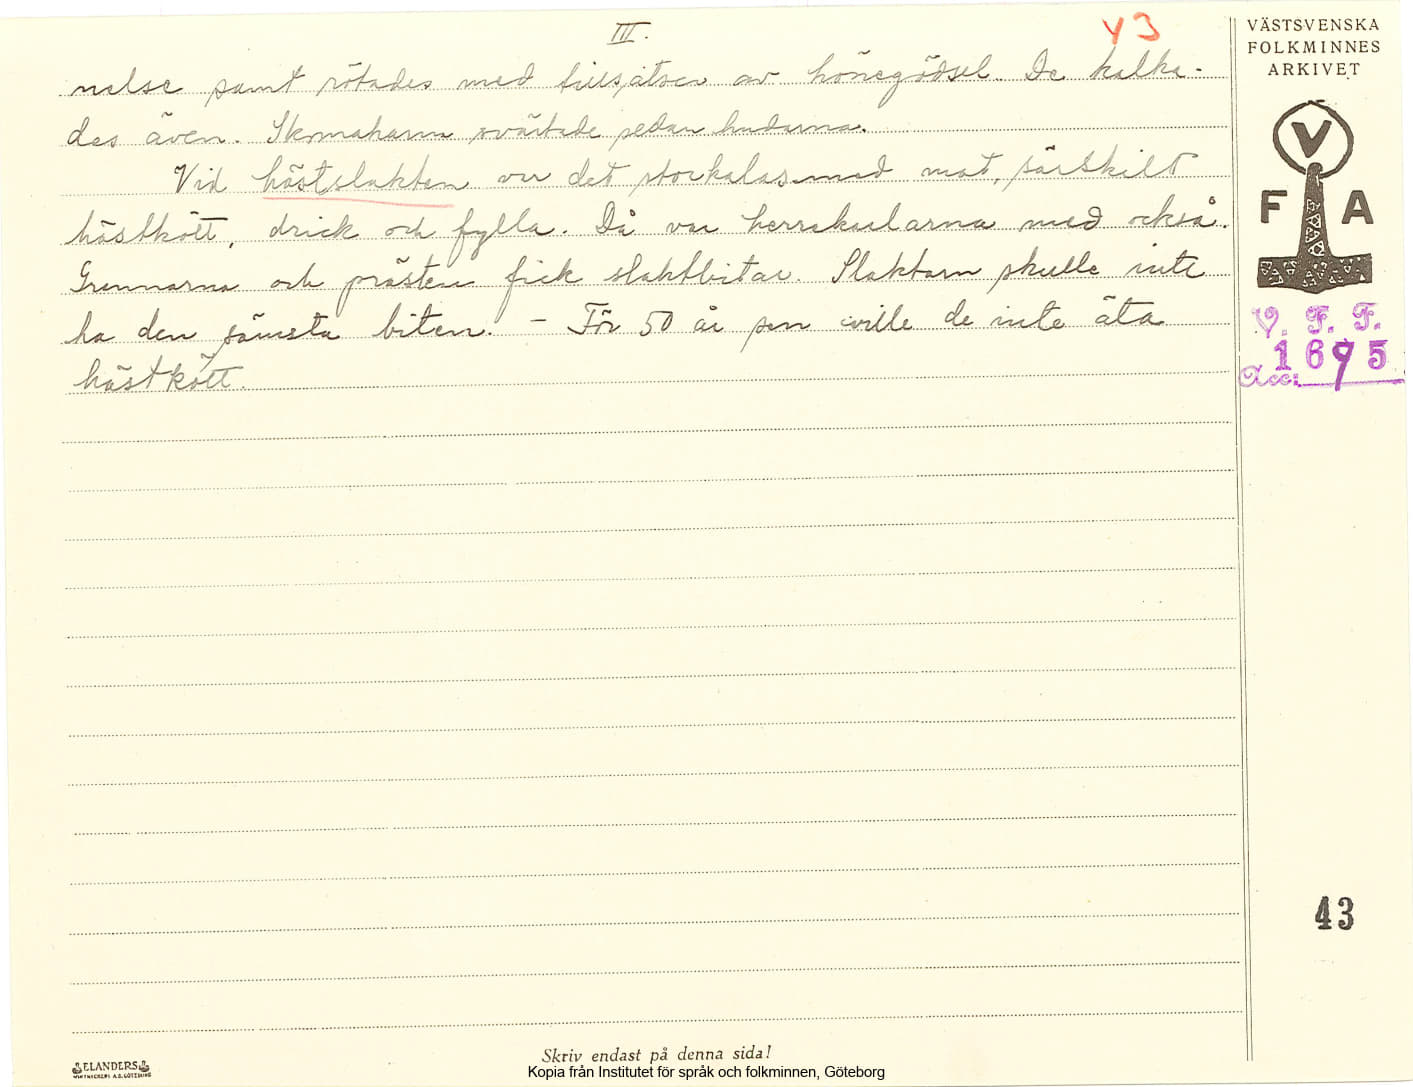 III.
43
VÄSTSVENSKA
FOLKMINNES
ARKIVET
nelse samt rötades med tillsatser av hönsgödsel. De kalka-
des även. Skomakarna svärtade sedan hudarna.
Vid hästslakten var det storkalas med mat, särskilt
hästkött, drick och fylla. Då var herrskaplarna med också.
Grannarna och prästen fick slaktbitar. Slaktarn skulle inte
ha den sämsta biten. - För 50 år sen ville de inte äta
hästkött.
V
F A
V. F. F.
1695
Acc:
43
ELANDERS
Skriv endast på denna sida!
Kopia från Institutet för språk och folkminnen, Göteborg